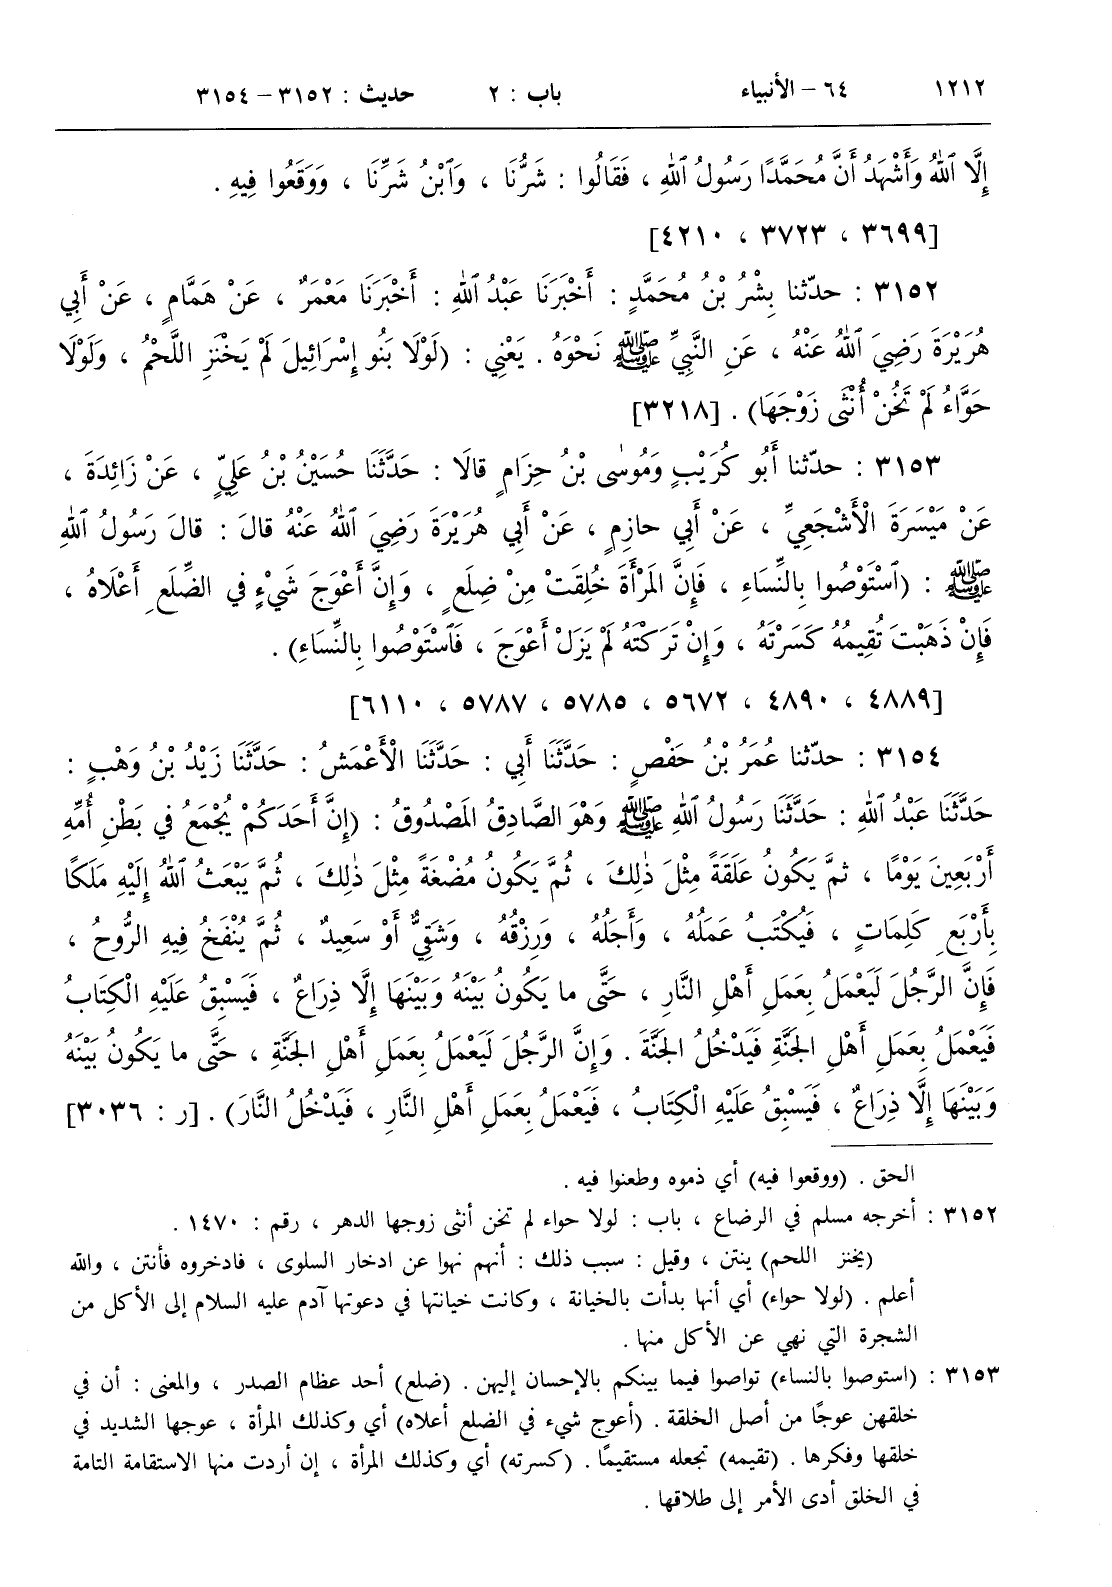 ١٢١٢ ٦٤ – الأنبياء باب : ٢ حديث : ٣١٥٢ – ٣١٥٤
إِلَّا ٱللهُ وَأَشْهَدُ أَنَّ مُحَمَّدًا رَسُولُ ٱللهِ ، فَقَالُوا : شَرُّنَا ، وَٱبْنُ شَرِّنَا ، وَوَقَعُوا فِيهِ .
[٣٦٩٩ ، ٣٧٢٣ ، ٤٢١٠]
٣١٥٢ : حدّثنا بِشْرُ بْنُ مُحَمَّدٍ : أَخْبَرَنَا عَبْدُ ٱللهِ : أَخْبَرَنَا مَعْمَرٌ ، عَنْ هَمَّامٍ ، عَنْ أَبِي
هُرَيْرَةَ رَضِيَ ٱللهُ عَنْهُ ، عَنِ النَّبِيِّ ﷺ نَحْوَهُ . يَعْنِي : (لَوْلَا بَنُو إِسْرَائِيلَ لَمْ يَخْنَزِ اللَّحْمُ ، وَلَوْلَا
حَوَّاءُ لَمْ تَخُنْ أُنْثَى زَوْجَهَا) . [٣٢١٨]
٣١٥٣ : حدّثنا أَبُو كُرَيْبٍ وَمُوسَى بْنُ حِزَامٍ قالَا : حَدَّثَنَا حُسَيْنُ بْنُ عَلِيٍّ ، عَنْ زَائِدَةَ ،
عَنْ مَيْسَرَةَ الْأَشْجَعِيِّ ، عَنْ أَبِي حازِمٍ ، عَنْ أَبِي هُرَيْرَةَ رَضِيَ ٱللهُ عَنْهُ قالَ : قالَ رَسُولُ ٱللهِ
ﷺ : (ٱسْتَوْصُوا بِالنِّسَاءِ ، فَإِنَّ المَرْأَةَ خُلِقَتْ مِنْ ضِلَعٍ ، وَإِنَّ أَعْوَجَ شَيْءٍ فِي الضِّلَعِ أَعْلَاهُ ،
فَإِنْ ذَهَبْتَ تُقِيمُهُ كَسَرْتَهُ ، وَإِنْ تَرَكْتَهُ لَمْ يَزَلْ أَعْوَجَ ، فَٱسْتَوْصُوا بِالنِّسَاءِ) .
[٤٨٨٩ ، ٤٨٩٠ ، ٥٦٧٢ ، ٥٧٨٥ ، ٥٧٨٧ ، ٦١١٠]
٣١٥٤ : حدّثنا عُمَرُ بْنُ حَفْصٍ : حَدَّثَنَا أَبِي : حَدَّثَنَا الْأَعْمَشُ : حَدَّثَنَا زَيْدُ بْنُ وَهْبٍ :
حَدَّثَنَا عَبْدُ ٱللهِ : حَدَّثَنَا رَسُولُ ٱللهِ ﷺ وَهْوَ الصَّادِقُ المَصْدُوقُ : (إِنَّ أَحَدَكُمْ يُجْمَعُ فِي بَطْنِ أُمِّهِ
أَرْبَعِينَ يَوْمًا ، ثمَّ يَكُونُ عَلَقَةً مِثْلَ ذٰلِكَ ، ثُمَّ يَكُونُ مُضْغَةً مِثْلَ ذٰلِكَ ، ثُمَّ يَبْعَثُ ٱللهُ إِلَيْهِ مَلَكًا
بِأَرْبَعِ كَلِمَاتٍ ، فَيُكْتَبُ عَمَلُهُ ، وَأَجَلُهُ ، وَرِزْقُهُ ، وَشَقِيٌّ أَوْ سَعِيدٌ ، ثُمَّ يُنْفَخُ فِيهِ الرُّوحُ ،
فَإِنَّ الرَّجُلَ لَيَعْمَلُ بِعَمَلِ أَهْلِ النَّارِ ، حَتَّى ما يَكُونُ بَيْنَهُ وَبَيْنَهَا إِلَّا ذِرَاعٌ ، فَيَسْبِقُ عَلَيْهِ الْكِتَابُ
فَيَعْمَلُ بِعَمَلِ أَهْلِ الجَنَّةِ فَيَدْخُلُ الجَنَّةَ . وَإِنَّ الرَّجُلَ لَيَعْمَلُ بِعَمَلِ أَهْلِ الجَنَّةِ ، حَتَّى ما يَكُونُ بَيْنَهُ
وَبَيْنَهَا إِلَّا ذِرَاعٌ ، فَيَسْبِقُ عَلَيْهِ الْكِتَابُ ، فَيَعْمَلُ بِعَمَلِ أَهْلِ النَّارِ ، فَيَدْخُلُ النَّارَ) . [ر : ٣٠٣٦]
الحق . (ووقعوا فيه) أي ذموه وطعنوا فيه .
٣١٥٢ : أخرجه مسلم في الرضاع ، باب : لولا حواء لم تخن أنثى زوجها الدهر ، رقم : ١٤٧٠ .
(يخنز اللحم) ينتن ، وقيل : سبب ذلك : أنهم نهوا عن ادخار السلوى ، فادخروه فأنتن ، والله
أعلم . (لولا حواء) أي أنها بدأت بالخيانة ، وكانت خيانتها في دعوتها آدم عليه السلام إلى الأكل من
الشجرة التي نهي عن الأكل منها .
٣١٥٣ : (استوصوا بالنساء) تواصوا فيما بينكم بالإحسان إليهن . (ضلع) أحد عظام الصدر ، والمعنى : أن في
خلقهن عوجًا من أصل الخلقة . (أعوج شيء في الضلع أعلاه) أي وكذلك المرأة ، عوجها الشديد في
خلقها وفكرها . (تقيمه) تجعله مستقيمًا . (كسرته) أي وكذلك المرأة ، إن أردت منها الاستقامة التامة
في الخلق أدى الأمر إلى طلاقها .